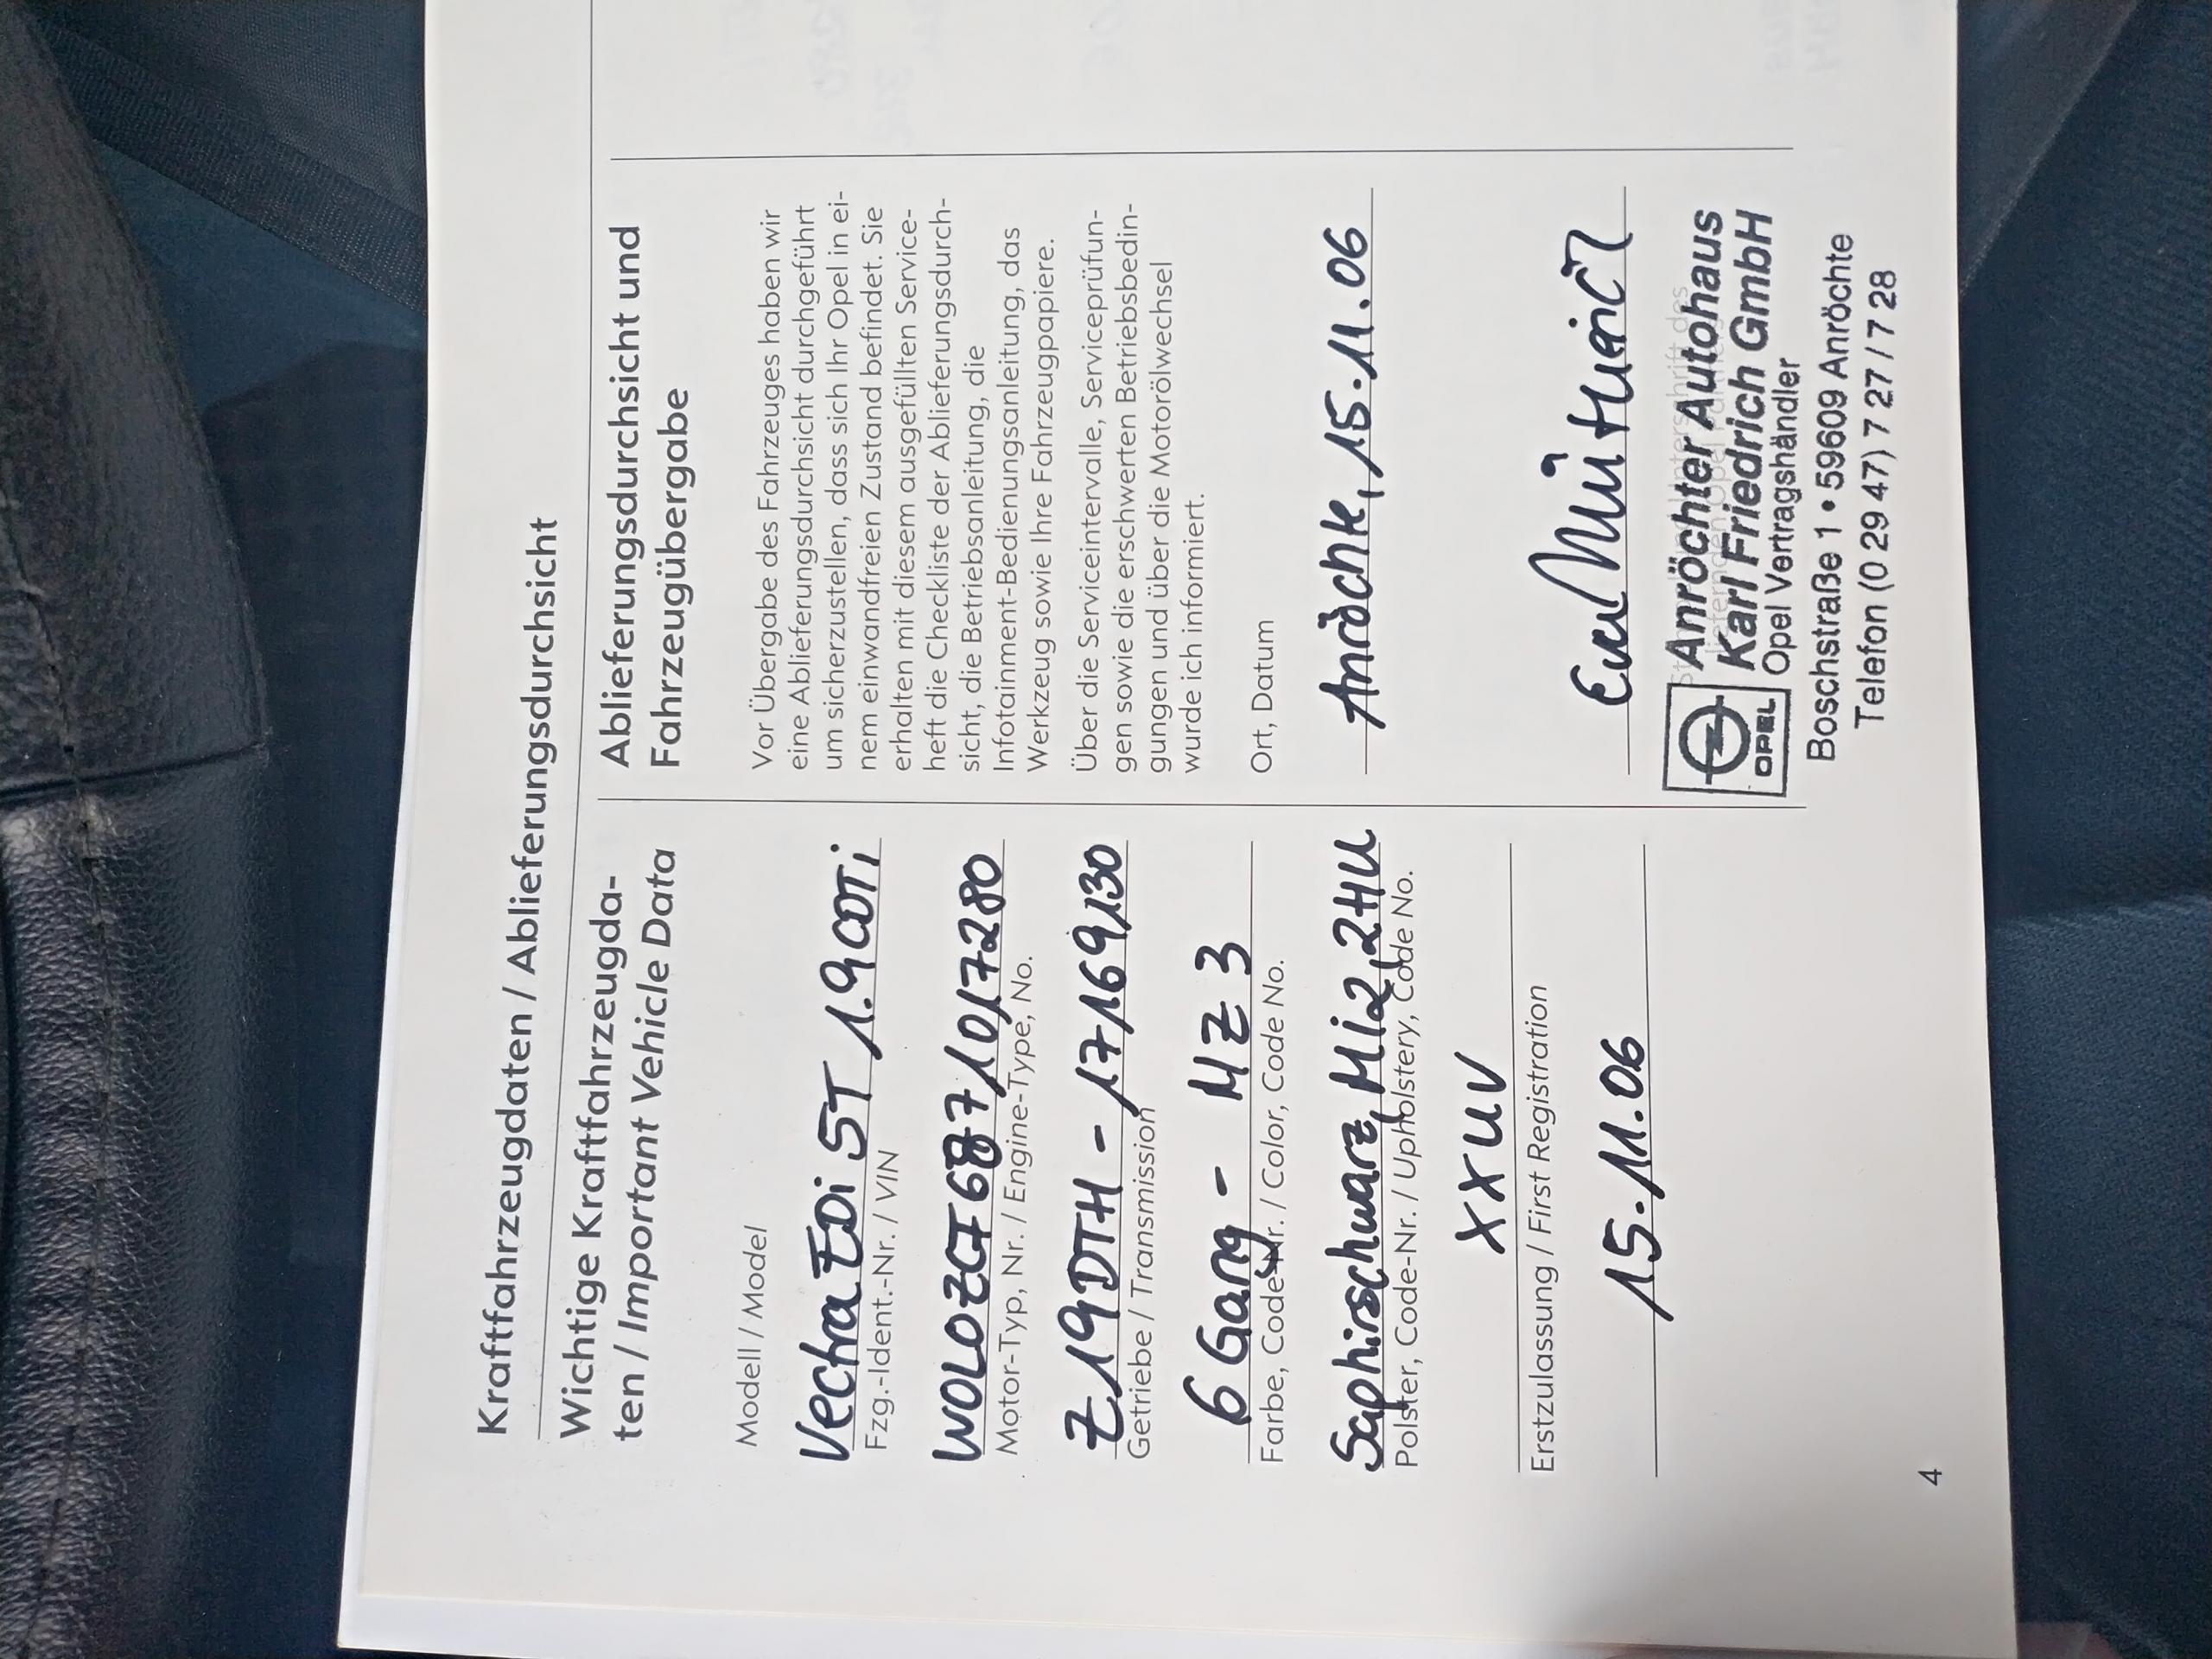 Kraftfahrzeugdaten / Ablieferungsdurchsicht
Wichtige Kraftfahrzeugda-
ten / Important Vehicle Data
Modell / Model
Vectra EDi ST 1.9 CDTi
Fzg.-Ident.-Nr. / VIN
Motor-Typ, Nr. / Engine-Type, No.
Z19DTH - 17169130
Getriebe / Transmission
6 Gang - MZ3
Farbe, Code-Nr. / Color, Code No.
Saphirschwarz, Mi2, 2HU
Polster, Code-Nr. / Upholstery, Code No.
XXUV
Erstzulassung / First Registration
15.11.06
4
Ablieferungsdurchsicht und
Fahrzeugübergabe
Vor Übergabe des Fahrzeuges haben wir
eine Ablieferungsdurchsicht durchgeführt
um sicherzustellen, dass sich Ihr Opel in ei-
nem einwandfreien Zustand befindet. Sie
erhalten mit diesem ausgefüllten Service-
heft die Checkliste der Ablieferungsdurch-
sicht, die Betriebsanleitung, die
Infotainment-Bedienungsanleitung, das
Werkzeug sowie Ihre Fahrzeugpapiere.
Über die Serviceintervalle, Serviceprüfun-
gen sowie die erschwerten Betriebsbedin-
gungen und über die Motorölwechsel
wurde ich informiert.
Ort, Datum
Anröchte, 15.11.06
Anröchter Autohaus
Karl Friedrich GmbH
OPEL Opel Vertragshändler
Boschstraße 1 • 59609 Anröchte
Telefon (0 29 47) 7 27 / 7 28